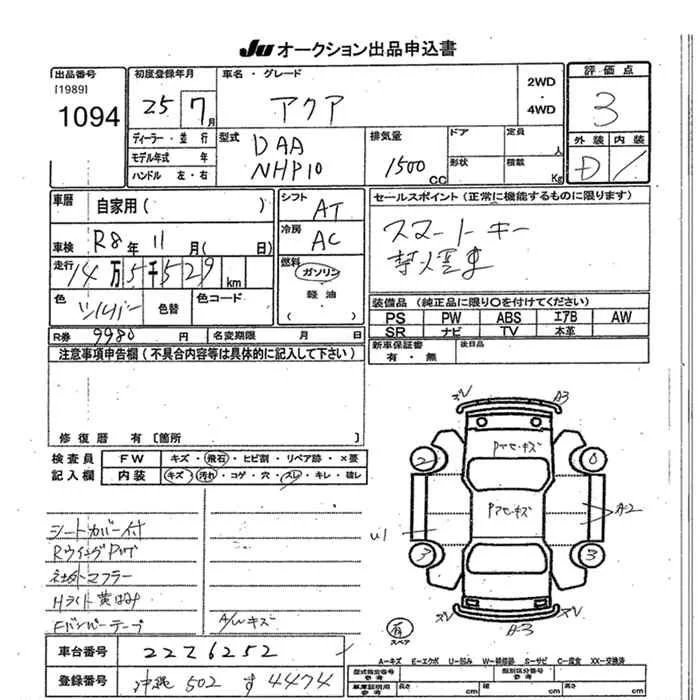 JU オークション出品申込書
出品番号
[1989]
1094
初度登録年月
25 7月
車名・グレード
アクア
2WD
・
4WD
評価点
3
外装 内装
D
ディーラー・並行
モデル年式 年
ハンドル 左・右
型式
DAA
NHP10
排気量
1500 CC
ドア
定員
人
形状
積載
Kg
車歴
自家用( )
車検
R8年 11月( 日)
走行
14万5千529km
色
シルバー
色替
色コード
シフト
AT
冷房
AC
燃料
ガソリン
軽油
セールスポイント(正常に機能するものに限ります)
スマートキー
禁煙車
装備品(純正品に限り○を付けてください)
PS PW ABS エアB AW
SR ナビ TV 本革
新車保証書
有・無
後日品
R券 9980円
名変期限 月 日
注意事項申告欄(不具合内容等は具体的に記入して下さい)
修復歴 有[箇所 ]
検査員
記入欄
FW
キズ・飛石・ヒビ割・リペア跡・×要
内装
キズ・汚れ・コゲ・穴・スレ・キレ・破レ
シートカバー付
Hライト黄ばみ
Fバンパーテープ
A/Wキズ
ズレ
A3
キズ
2
0
キズ
A2
U1
3
3
有
スペア
ズレ
A3
ズレ
A−キズ E−エクボ U−凹み W−補修跡 S−サビ C−腐食 XX−交換済
車台番号
2276252
登録番号
沖縄 502 す 4474
型式指定番号
参考
類別区分番号
参考
車庫証明用
参考
長さ cm
幅 cm
高さ cm